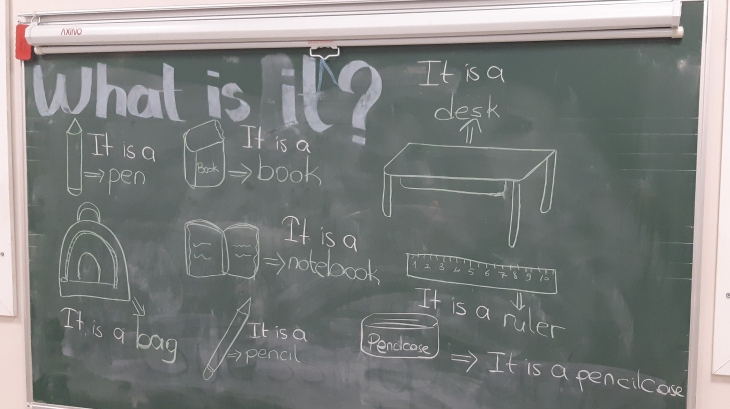 What is it?
It is a
pen
It is a
book
Book
It is a
desk
It is a
notebook
1 2 3 4 5 6 7 8 9 10
It is a ruler
It is a bag
It is a
pencil
Pencilcase
It is a pencilcase